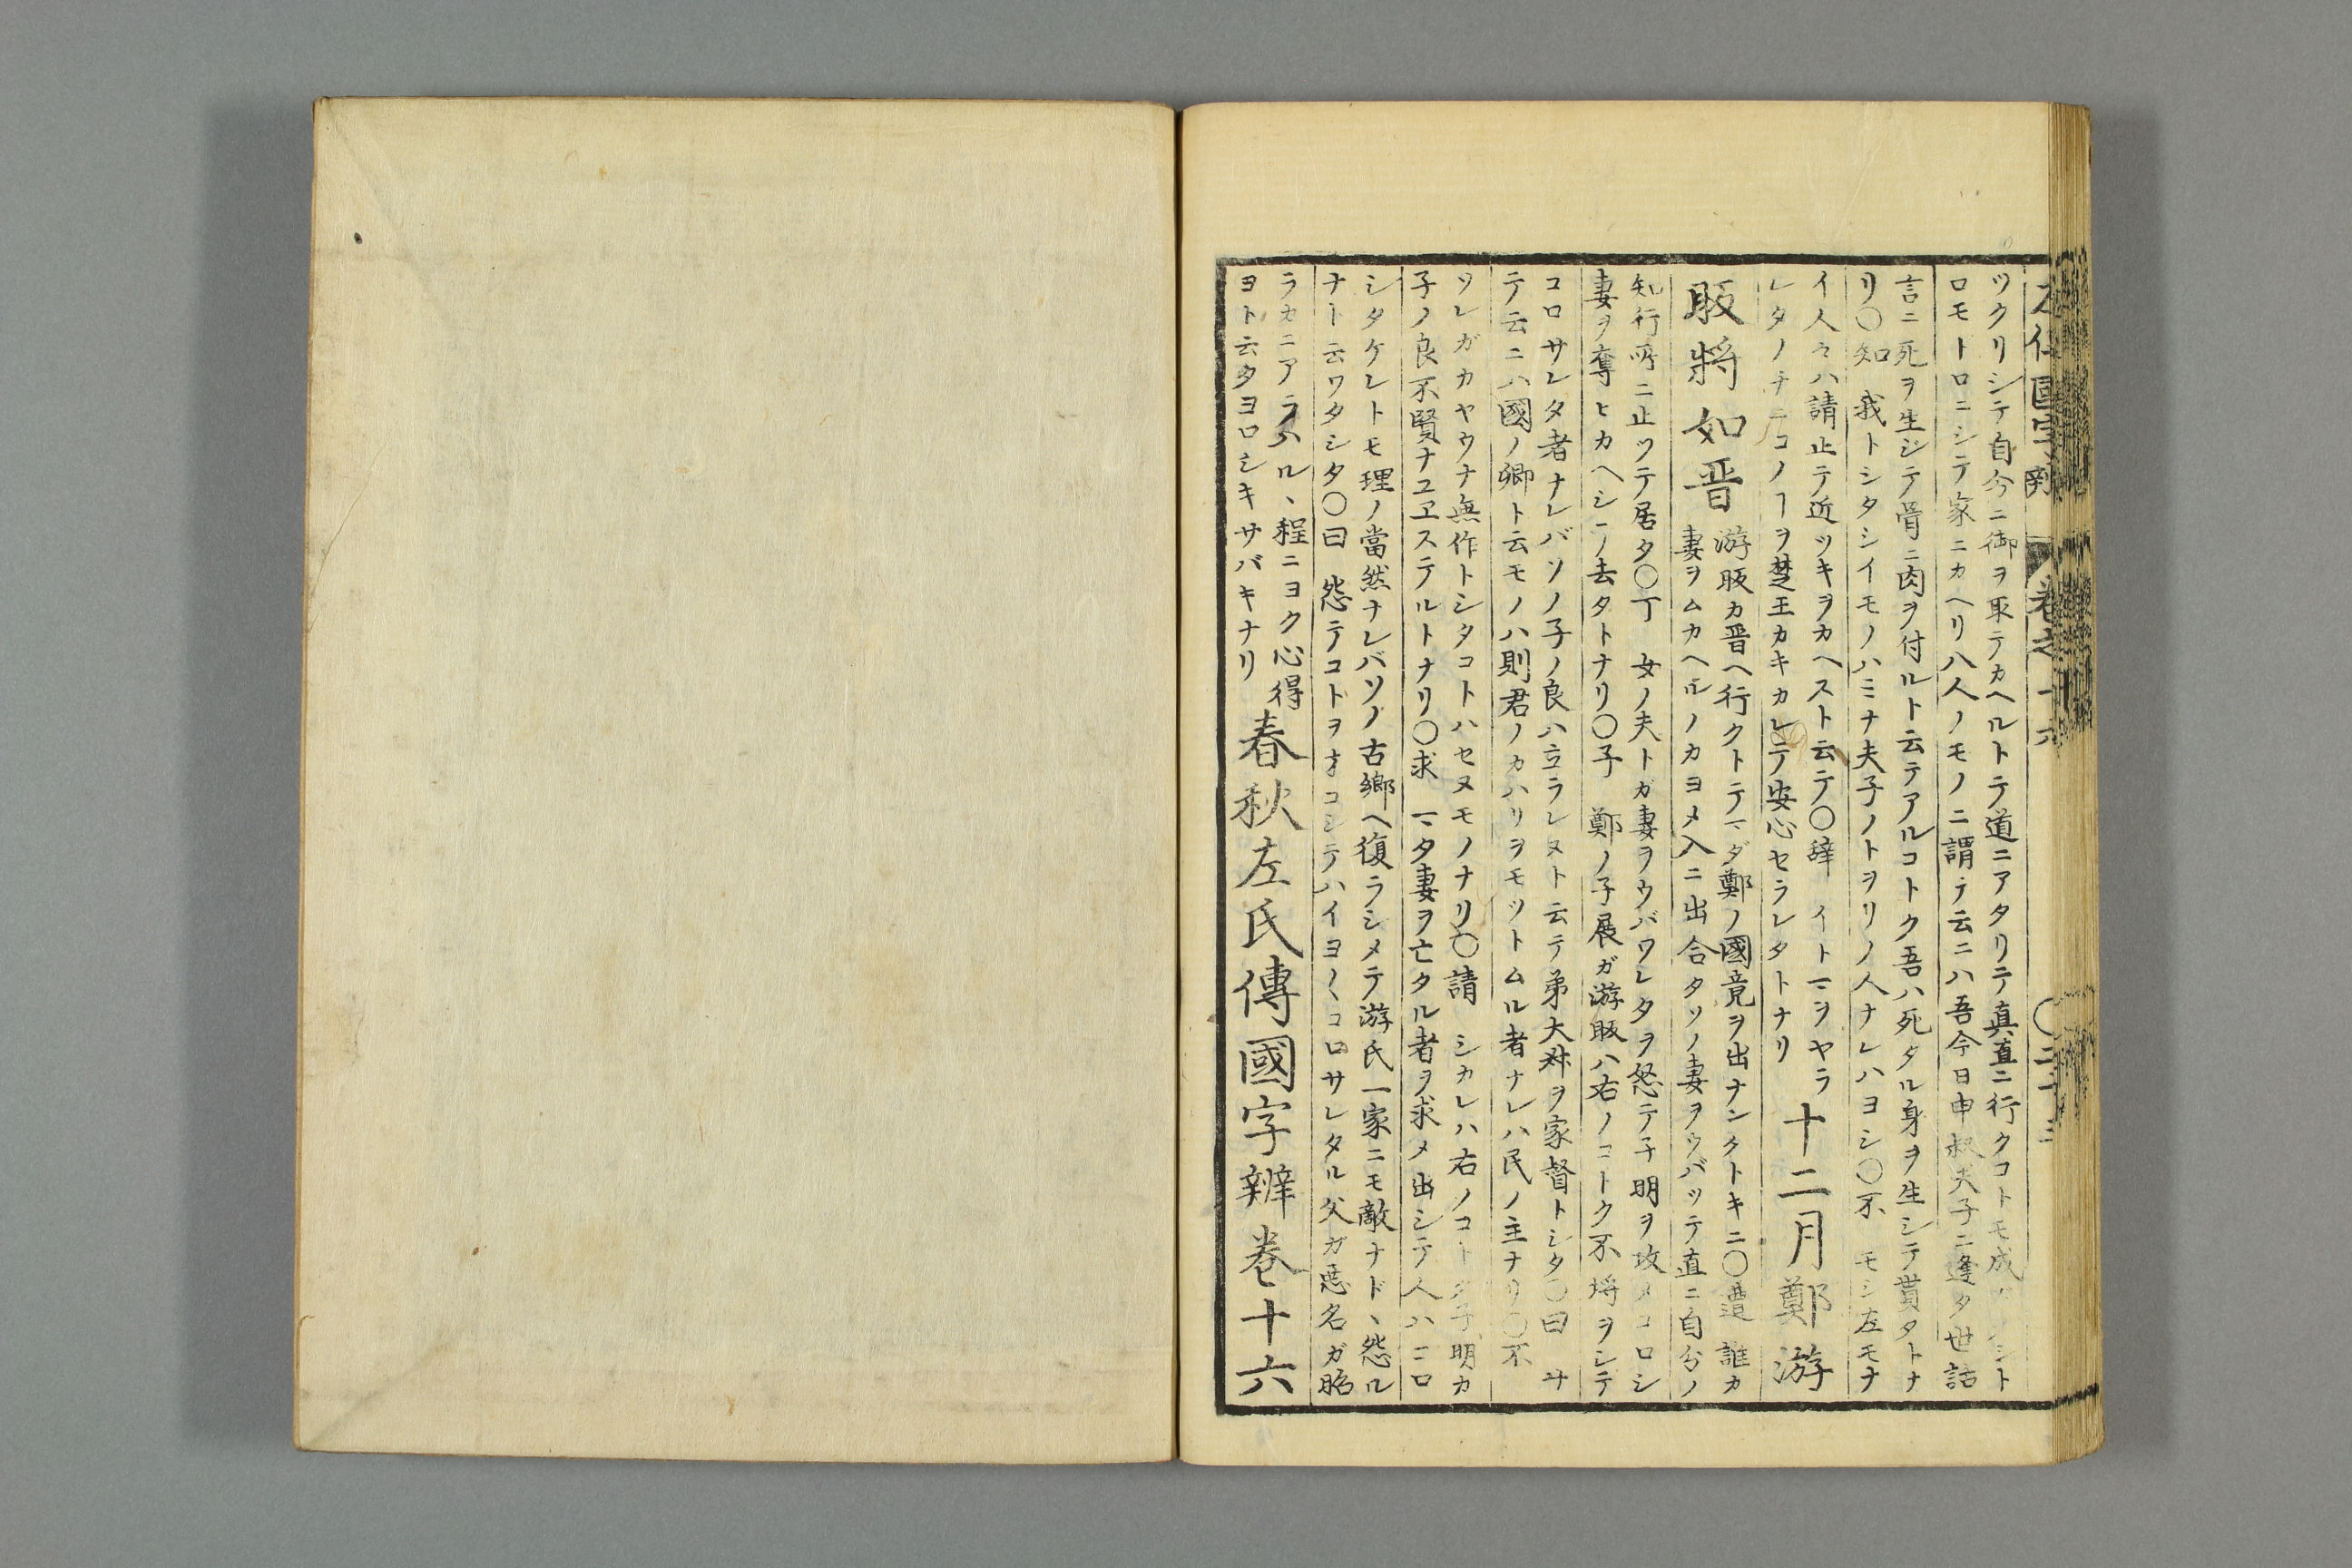 左傳國字辨 卷之十六 〇三十三
ツクリシテ自今ニ御ヲ取テカヘルトテ道ニアタリテ真直ニ行クコトモ成
ロモトロニシテ家ニカヘリ八人ノモノニ謂テ云ニハ吾今日申叔夫子ニ逢タ世話
言ニ死ヲ生ジテ骨ニ肉ヲ付ルト云テアルコトク吾ハ死タル身ヲ生シテ貰タトナ
リ〇知 我トシタシイモノハミナ夫子ノトヲリノ人ナレハヨシ〇不 モシ左モナ
イ人々ハ請止テ近ツキヲカヘスト云テ〇辞 イトマヲヤラ
レタノチニコノヿヲ楚王カキカレテ安心セラレタトナリ
十二月鄭游
眅將如晋
游眅カ晋ヘ行クトテマダ鄭ノ國竟ヲ出ナンタトキニ〇遭 誰カ
妻ヲムカヘルノカヨメ入ニ出合タソノ妻ヲウバッテ直ニ自分ノ
知行所ニ止ツテ居タ〇丁 女ノ夫トガ妻ヲウバワレタヲ怒テ子明ヲ攻メコロシ
妻ヲ奪ヒカヘシテ去タトナリ〇子 鄭ノ子展ガ游眅ハ右ノコトク不埓ヲシテ
コロサレタ者ナレバソノ子ノ良ハ立ラレヌト云テ弟大叔ヲ家督トシタ〇曰 サ
テ云ニハ國ノ卿ト云モノハ則君ノカハリヲモツトムル者ナレハ民ノ主ナリ〇不
ソレガカヤウナ無作トシタコトハセヌモノナリ〇請 シカレハ右ノコトク子明カ
子ノ良不賢ナユヱステルトナリ〇求 マタ妻ヲ亡タル者ヲ求メ出シテ人ハニロ
シタケレトモ理ノ當然ナレバソノ古郷ヘ復ラシメテ游氏一家ニモ敵ナド、怨ル
ナト云ワタシタ〇曰 怨テコトヲオコシテハイヨ〱コロサレタル父ガ惡名ガ昭
ラカニアラハル、程ニヨク心得
ヨト云タヨロシキサバキナリ
春秋左氏傳國字辨卷十六